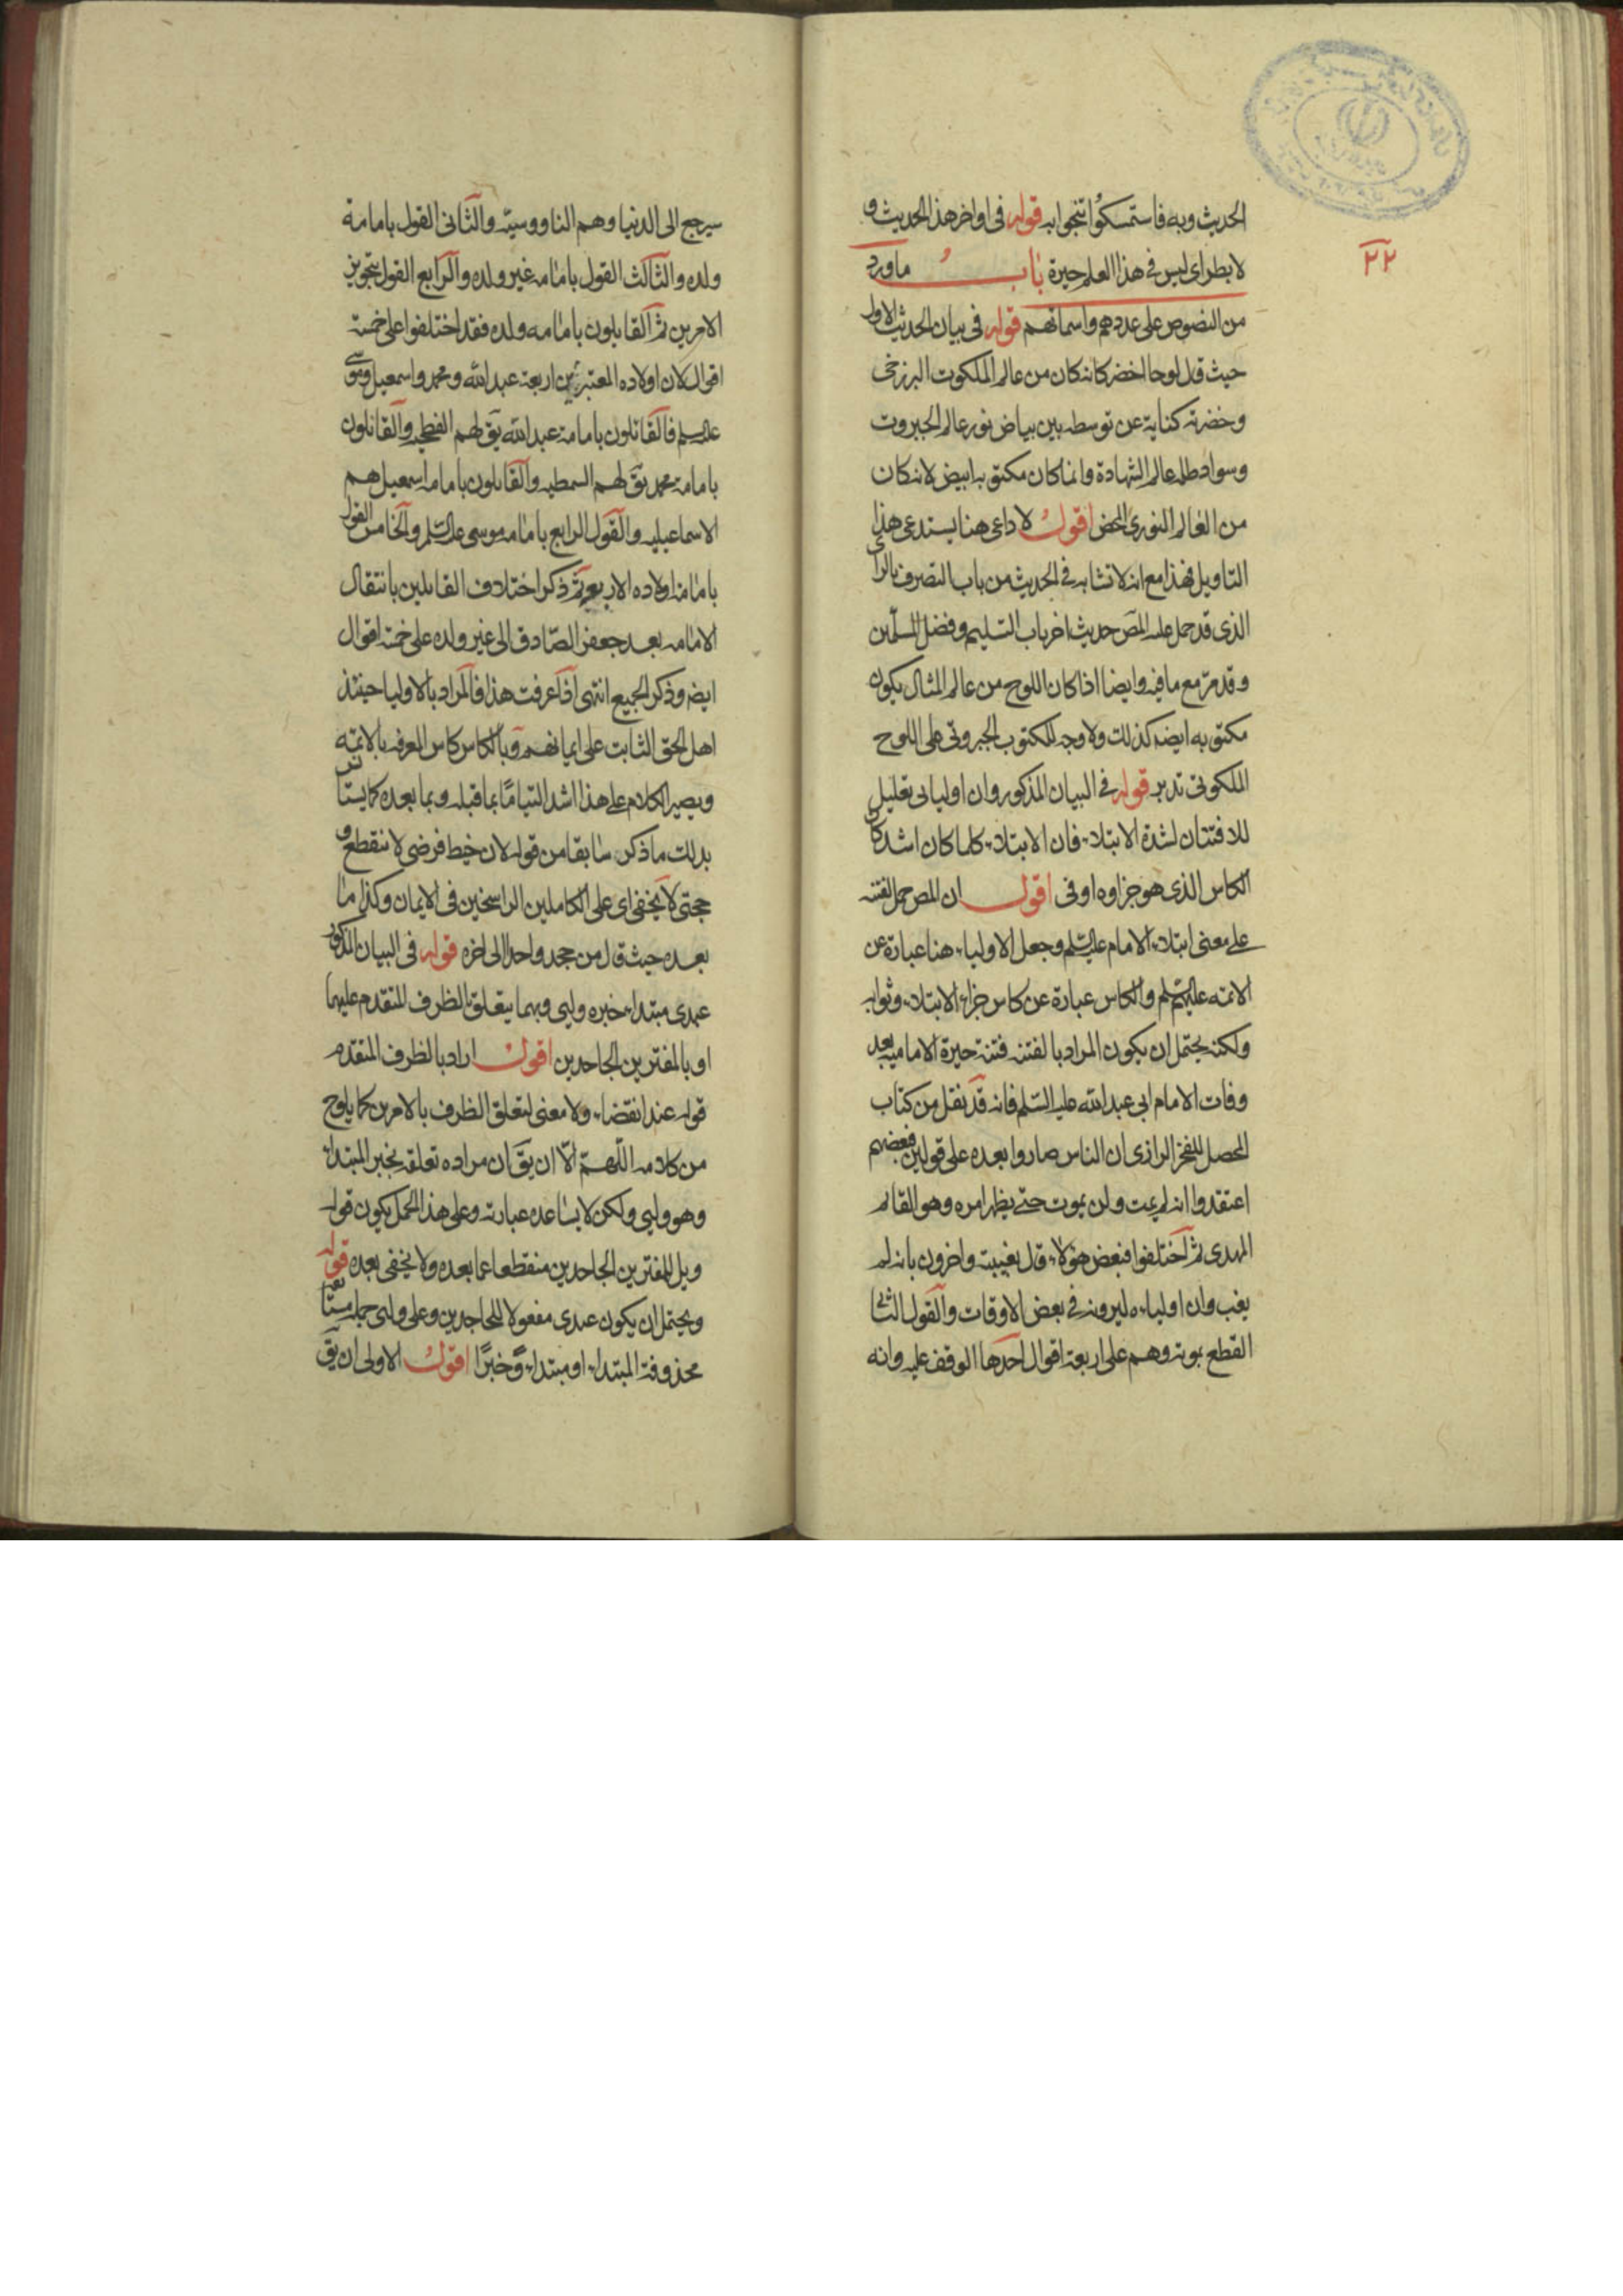 ٢٢
الحديث وبه فاستمسكوا تنجوا به قوله فى اواخر هذا الحديث و
لا بطر اى ليس فى هذا العلم حيرة باب ما ورد
من النصوص على عددهم واسمائهم قوله فى بيان الحديث الاول
حيث قال لوحا اخضر كانه كان من عالم الملكوت البرزخى
وخضرته كناية عن توسطه بين بياض نور عالم الجبروت
وسواد ظلمة عالم الشهادة وانما كان مكتوبه ابيض لانه كان
من العالم النورى المحض اقول لا داعى هنا يستدعى هذا
التاويل فهذا مع انه لا تشابه فى الحديث من باب التصرف بالراى
الذى قد حمل عليه المص حديث اخر باب التسليم وفضل المسلمين
وقد مر مع ما فيه وايضا اذا كان اللوح من عالم المثال يكون
مكتوبه ايضه كذلك ولا وجه للمكتوب الجبروتى على اللوح
الملكوتى تدبر قوله فى البيان المذكور وان اوليائى تعليل
للافتتان لشدة الابتلاء فان الابتلاء كلما كان اشد كان
الكاس الذى هو جزاوه اوفى اقول ان المص حمل الفتنه
على معنى ابتلاء الامام عليه السلم وجعل الاولياء هنا عبارة عن
الائمه عليهم السلم والكاس عبارة عن كاس جزاء الابتلاء وثوابه
ولكنه يحتمل ان يكون المراد بالفتنه فتنة حيرة الاماميه بعد
وفات الامام ابى عبد الله عليه السلم فانه قد نقل من كتاب
المحصل للفخر الرازى ان الناس صاروا بعده على قولين فبعضهم
اعتقدوا انه لم يمت ولن يموت حتى يظهر امره وهو القائم
المهدى ثم اختلفوا فبعض هؤلاء قال بغيبته واخرون بانه لم
يغب وان اولياءه ليرونه فى بعض الاوقات والقول الثانى
القطع بموته وهم على اربعة اقوال احدها الوقف عليه وانه
سيرجع الى الدنيا وهم الناووسيّه والثانى القول بامامة
ولده والثالث القول بامامه غير ولده والرابع القول بتجويز
الامرين ثم القايلون بامامه ولده فقد اختلفوا على خمسة
اقوال لان اولاده المعتبرين اربعة عبد الله ومحمد واسمعيل وموسى
عليه السلم فالقائلون بامامة عبد الله يق لهم الفطحيه والقائلون
بامامة محمد يق لهم السمطيه والقايلون بامامه اسمعيل هم
الاسماعيليه والقول الرابع بامامه موسى عليه السلم والخامس القول
بامامة اولاده الاربعه ثم ذكر اختلاف القايلين بانتقال
الامامه بعد جعفر الصّادق الى غير ولده على خمسة اقوال
ايضه وذكر الجميع انتهى اذا عرفت هذا فالمراد بالاوليا حينئذ
اهل الحق الثابت على ايمانهم وبالكاس كاس المعرفه بالائمه
ويصير الكلام على هذا اشد التياما بما قبله وبما بعده كما يستانس
بذلك ما ذكر سابقا من قوله لان خيط فرضى لا ينقطع و
حجتى لا تخفى اى على الكاملين الراسخين فى الايمان وكذا ما
بعده حيث قال من جحد واحدا الى اخره قوله فى البيان المذكور
عبدى مبتداء خبره وليى وبهما يتعلق الظرف المتقدم عليهما
او بالمفترين الجاحدين اقول اراد بالظرف المتقدم
قوله عند انقضاء ولا معنى لتعلق الظرف بالامرين كما يلوح
من كلامه اللّهمّ الّا ان يق ان مراده تعلقه بخبر المبتداء
وهو وليى ولكن لا يساعده عبارته وعلى هذا الحمل يكون قوله
ويل للمفترين الجاحدين منقطعا عما بعده ولا يخفى بعده قوله
ويحتمل ان يكون عبدى مفعولا للجاحدين وعلى وليى جملة مستانفه
محذوفة المبتداء او مبتداء وخبرًا اقول الاولى ان يق